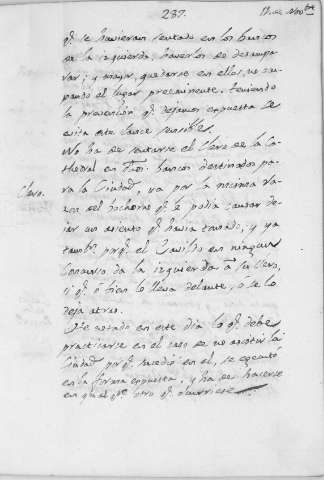 237.
12 de Nov.bre
q.e se huvieran sentado en los bancos
de la izquierda, haverlos de desampa
rar; y mejor, quedarse en ellos, no ocu
pando el lugar preeminente, teniendo
la prevencion q.e dejamos expuesta se
evita este lance sensible.
Clero.
No ha de sentarse el Clero de la Ca
thedral en los bancos destinados pa
ra la Ciudad, ya por la misma ra
zon del bochorno q.e se podia causar de
jar un asiento q.e havia tomado, y ya
tamb.n porq.e el Cavildo en ningun
Concurso da la izquierda a su Clero,
si q.e ó bien lo lleva delante, ó se lo
deja atras.
He notado en este dia lo q.e debe
practicarse en el caso de no asistir la
Ciudad porq.e sucedió en el, se egecutó
en la forma expuesta, y ha de hacerse
en qualq.ra otro q.e ocurriese